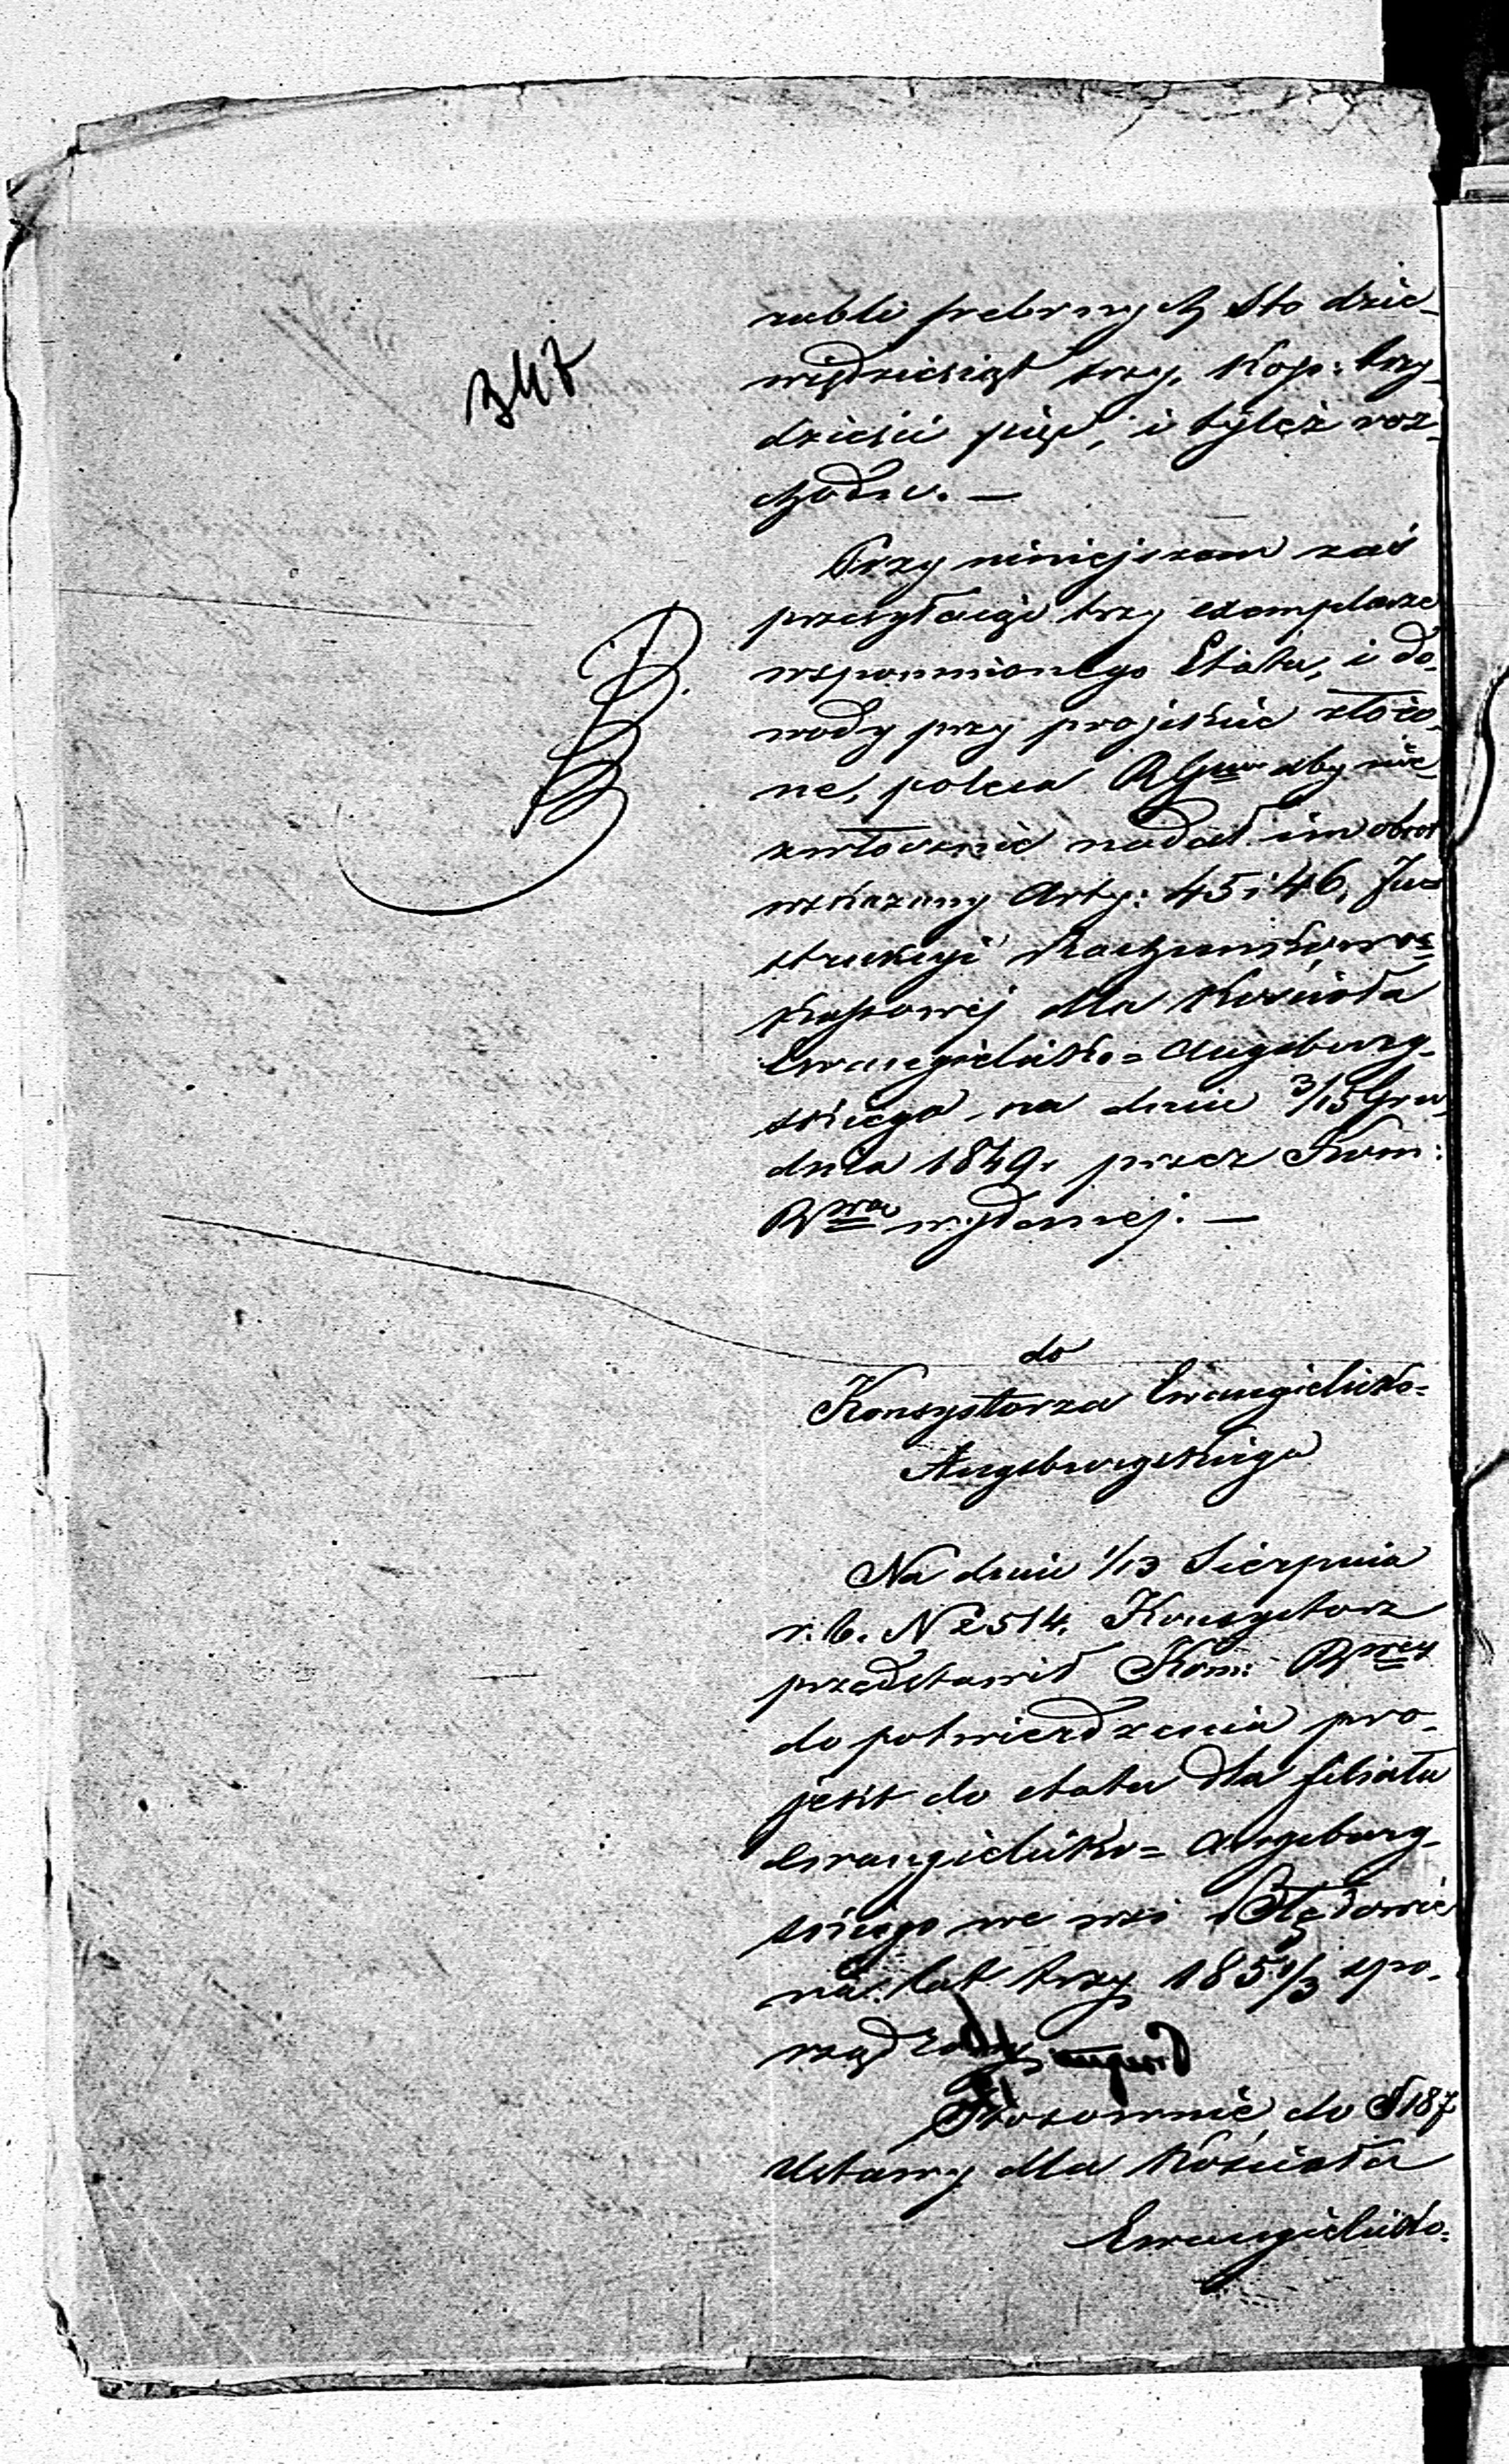 347
rubli srebrnych Sto dzie-
więdziesiąt trzy, Kop: trzy-
dzieści pięć, i tyleż roz-
chodu. —
Przy niniejszem zaś
przesyłając trzy exemplarze
wspomnionego Etatu, i do-
wody przy projekcie złożo-
ne, poleca RGuu aby nie-
zwłocznie nadał im obrot
wskazany Arty: 45 i 46, In-
strukcyi Rachunkowo=
Kassowej dla Kościoła
Ewangielicko=Augsburg-
skiego na dniu 3/15 Gru-
dnia 1849r przez Kom:
Rwa wydanej. —
do
Konsystorza Ewangielicko=
Augsburgskiego
Na dniu 1/13 Sierpnia
r. b. N 2514, Konsystorz
przedstawił Kom: Rwey
do potwierdzenia pro-
jekt do etatu dla filiału
Ewangielicko= Augsburg-
skiego we wsi Błędowie
na lat trzy 1851/3 spo-
rządzony,
Stosownie do § 187
Ustawy dla Kościoła
Ewangielicko-